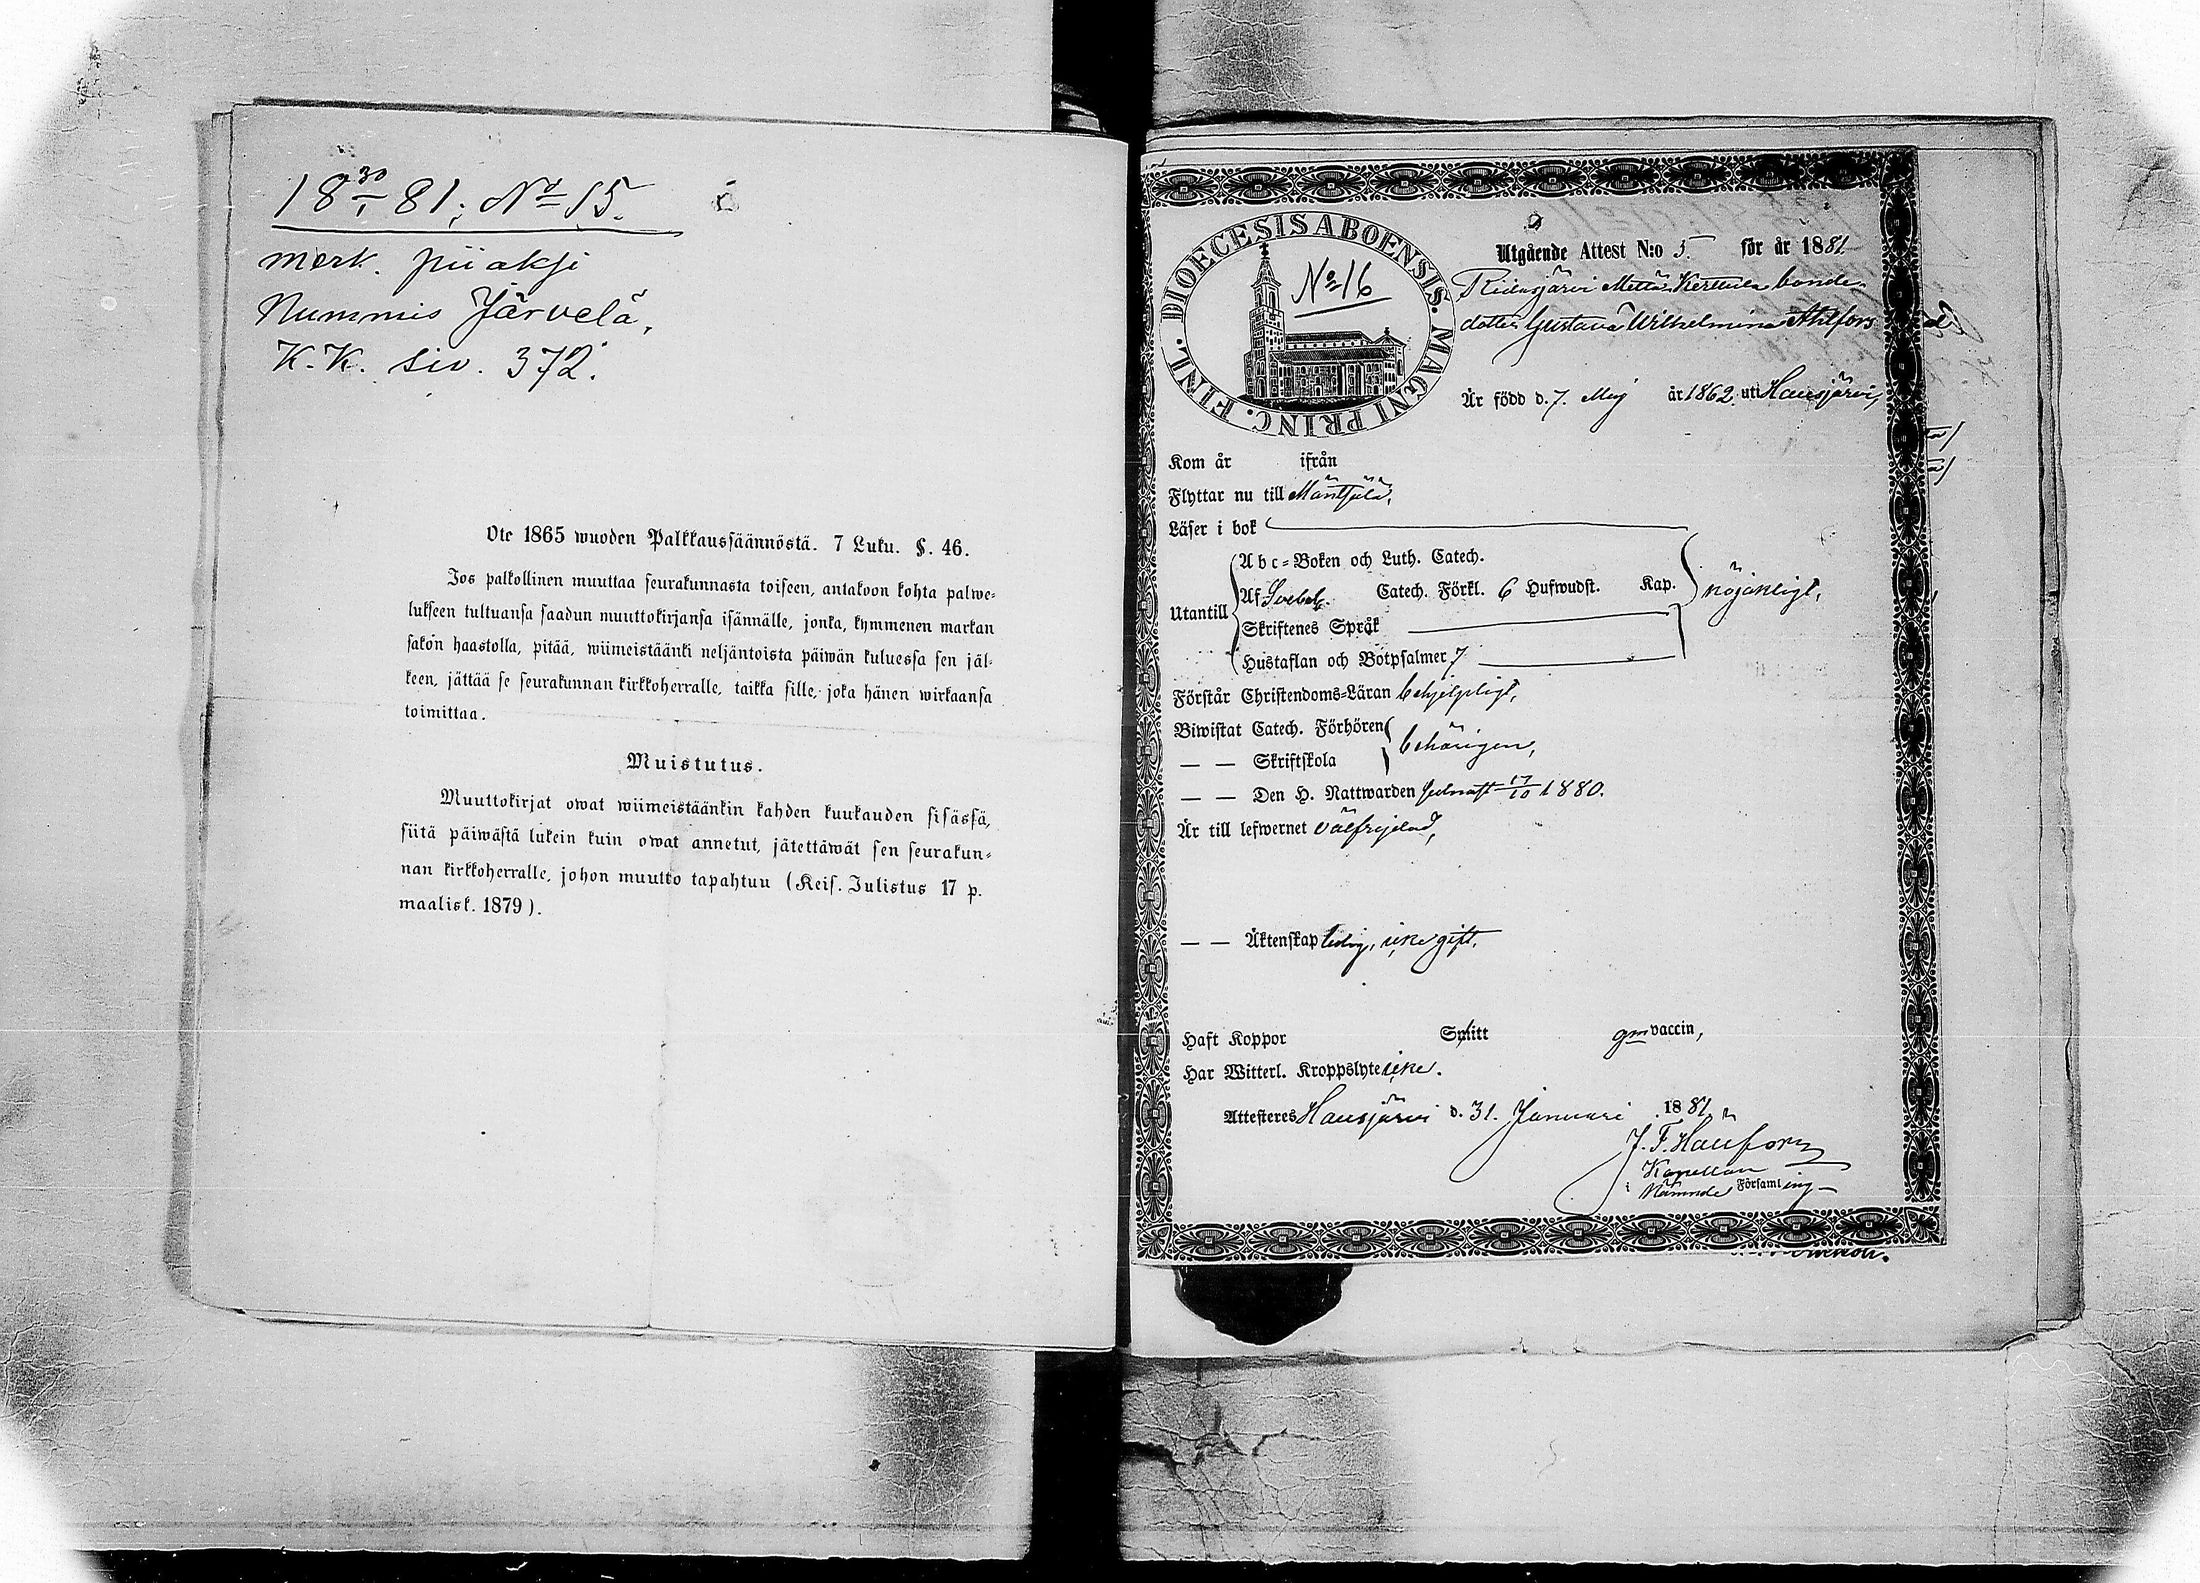 18 30/1 81; No 15.
merk. piiaksi
Nummis Järvelä,
K.K. siv. 372.
Ote 1865 wuoden Palkkaussäännöstä. 7 Luku. §. 46.
Jos palkollinen muuttaa seurakunnasta toiseen, antakoon kohta palwe-
lukseen tultuansa saadun muuttokirjansa isännälle, jonka, kymmenen markan
sakon haastolla, pitää, wiimeistäänki neljäntoista päiwän kuluessa sen jäl-
keen, jättää se seurakunnan kirkkoherralle, taikka sille, joka hänen wirkaansa
toimittaa.
Muistutus.
Muuttokirjat owat wiimeistäänkin kahden kuukauden sisässä,
siitä päiwästä lukein kuin owat annetut, jätettäwät sen seurakun-
nan kirkkoherralle, johon muutto tapahtuu (Keis. Julistus 17 p.
maalisk. 1879).
DIOECESIS ABOENSIS. MAGNI PRINC. FINL.
No 16
Utgående Attest N:o 5. för år 1881.
Ridasjärvi Kerttula bonde-
dotter Gustava Wilhelmina Ahlfors
Är född d. 7. Maj år 1862. uti Hausjärvi,
Kom år ifrån
Flyttar nu till Mäntsälä,
Läser i bok
Abc-Boken och Luth. Catech.
Utantill
Af Svebel. Catech. Förkl. 6 Hufwudst. Kap.
nöjaktigt,
Skriftenes Språk
Hustaflan och Botpsalmer 7
Förstår Christendoms-Läran behjelpligt,
Biwistat Catech. Förhören
behörigen,
— — Skriftskola
— — Den H. Nattwarden 17/10 1880.
Är till lefwernet välfrejdad,
— — Äktenskap ledig, icke gift.
Haft Koppor Smitt gm vaccin,
Har Witterl. Kroppslyte icke.
Attesteras Hausjärvi d. 31. Januari 1881.
J. F. Hallfors
Kapellan
i nämnde Församling